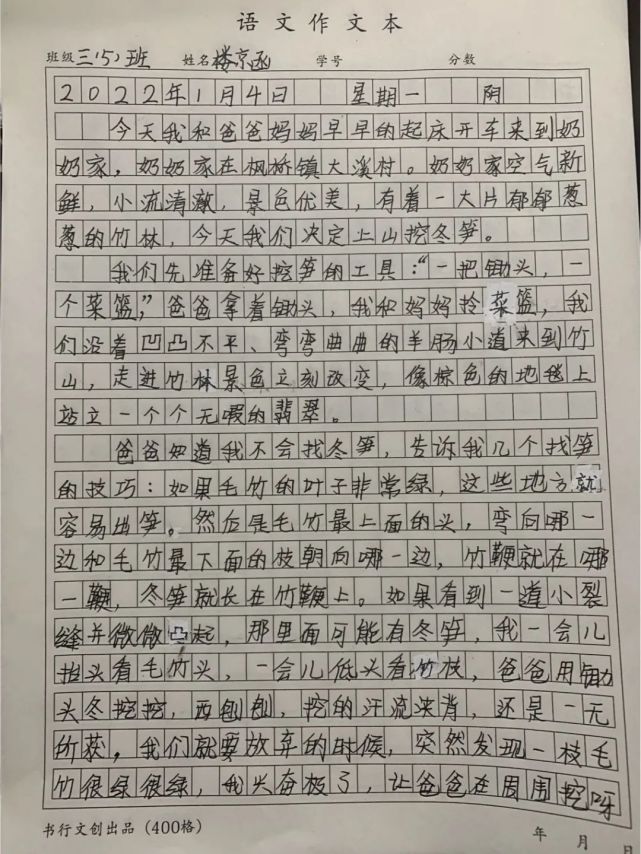 语文作文本
班级三(5)班 姓名楼京函 学号 分数
2022年1月4日 星期一 阴
今天我和爸爸妈妈早早的起床开车来到奶
奶家，奶奶家在枫桥镇大溪村。奶奶家空气新
鲜，小流清澈，景色优美，有着一大片郁郁葱
葱的竹林，今天我们决定上山挖冬笋。
我们先准备好挖笋的工具：“一把锄头，一
个菜篮，”爸爸拿着锄头，我和妈妈拎菜篮，我
们沿着凹凸不平、弯弯曲曲的羊肠小道来到竹
山，走进竹林景色立刻改变，像棕色的地毯上
站立一个个无暇的翡翠。
爸爸知道我不会找冬笋，告诉我几个找笋
的技巧：如果毛竹的叶子非常绿，这些地方就
容易出笋，然后是毛竹最上面的头，弯向哪一
边和毛竹最下面的枝朝向哪一边，竹鞭就在哪
一鞭，冬笋就长在竹鞭上。如果看到一道小裂
缝并微微凸起，那里面可能有冬笋，我一会儿
抬头看毛竹头，一会儿低头看竹枝，爸爸用锄
头冬挖挖，西刨刨，挖的汗流浃背，还是一无
所获，我们就要放弃的时候，突然发现一枝毛
竹很绿很绿，我兴奋极了，让爸爸在周围挖呀
书行文创出品（400格） 年 月 日